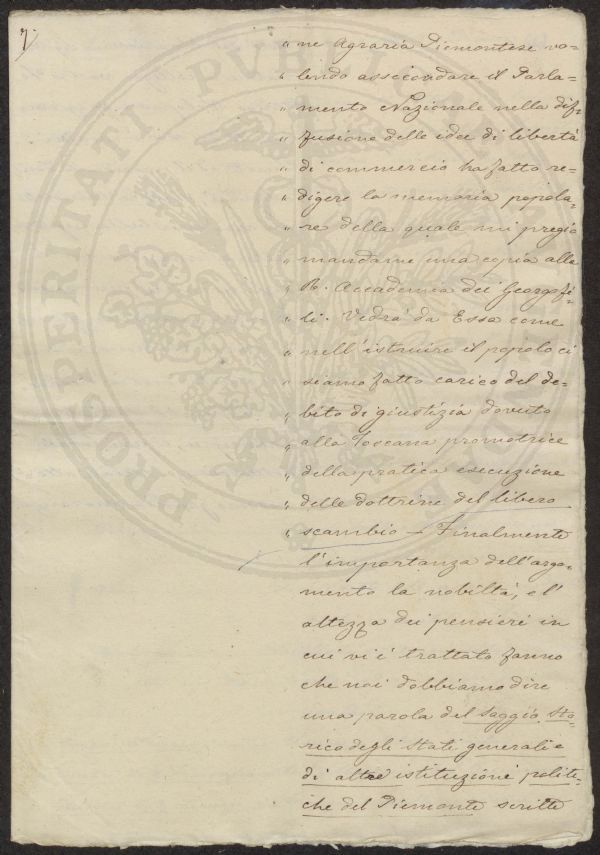 7.
" ne Agraria Piemontese vo=
" lendo assecondare il Parla=
" mento Nazionale nella dif=
" fusione delle idee di libertà
" di commercio ha fatto re=
" digere la memoria popola=
" re della quale mi pregio
" mandarne una copia alla
" R. Accademia dei Georgofi=
" li. Vedrà da Essa come
" nell'istruire il popolo ci
" siamo fatto carico del de=
" bito di giustizia dovuto
" alla Toscana promotrice
" della pratica esecuzione
" delle dottrine del libero
" scambio — Finalmente
l'importanza dell'argo=
mento la nobiltà, e l'
altezza dei pensieri in
cui vi è trattato fanno
che noi dobbiamo dire
una parola del saggio sto=
rico degli stati generali e
di altre istituzioni politi=
che del Piemonte scritte
PROSPERITATI PUBLICAE